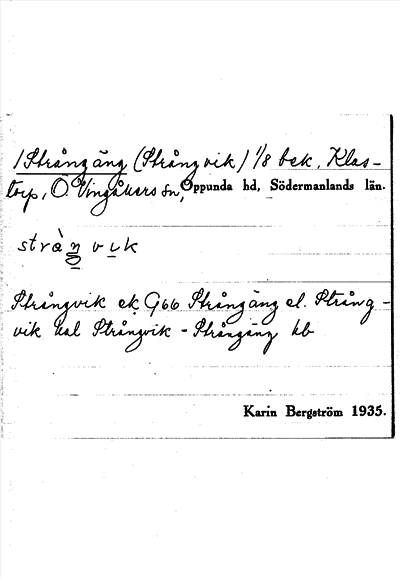 /Strångäng (Strångvik) 1/8 bek. Klas-
torp, Ö. Vingåkers sn, Oppunda hd, Södermanlands län.
stràŋ vik
Strångvik ek G66 Strångäng el. Strång-
vik kal Strångvik - Strångäng kb
Karin Bergström 1935.